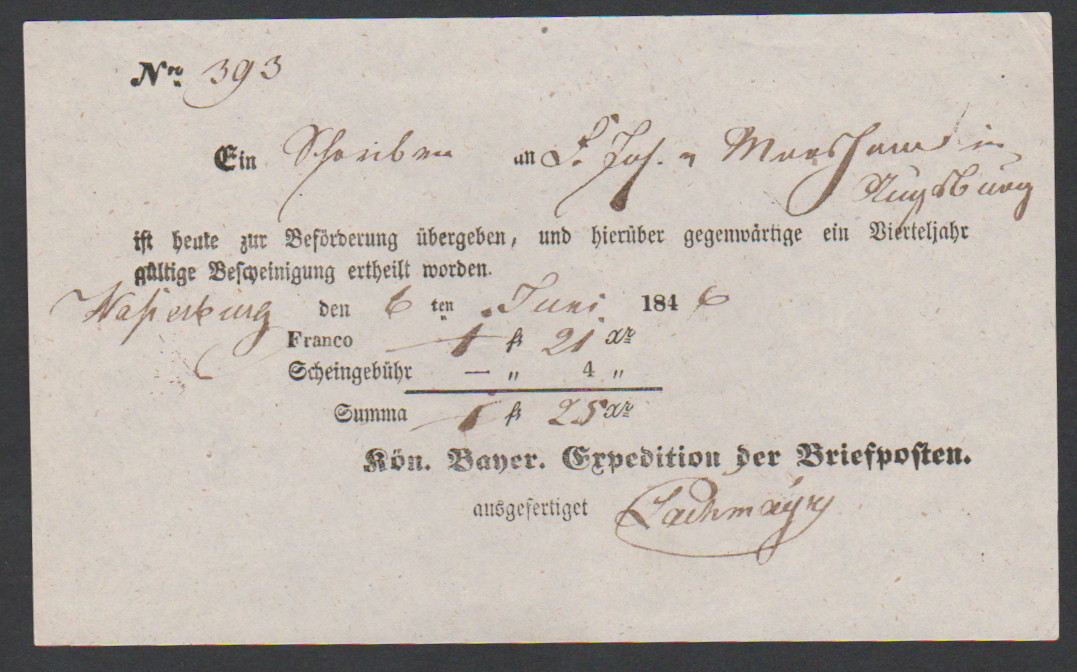 Nro. 393
Ein Schreiben an H. Jos. v Mors in
Augsburg
ist heute zur Beförderung übergeben, und hierüber gegenwärtige ein Vierteljahr
gültige Bescheinigung ertheilt worden.
Wasserburg den 6 ten Juni 1846
Franco 1 fl 21 xr
Scheingebühr — „ 4 „
Summa 1 fl 25 xr
Kön. Bayer. Expedition der Briefposten.
ausgefertiget Lachmayr